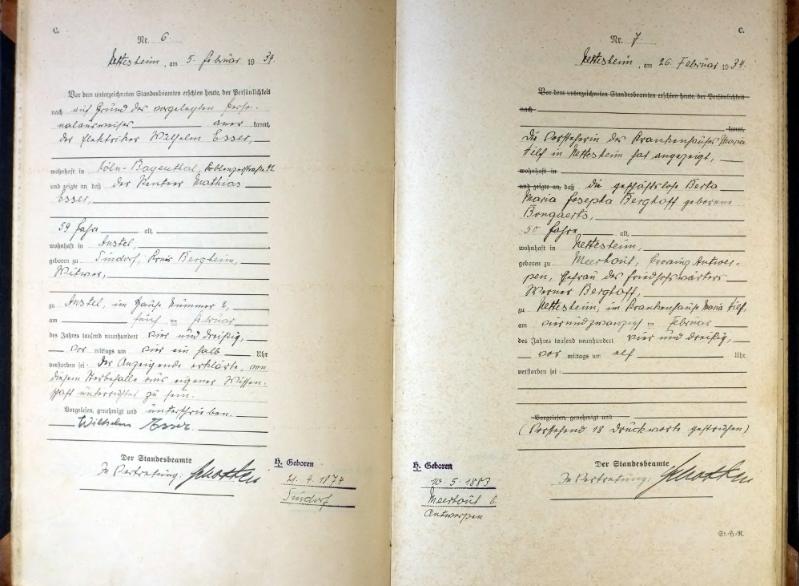 C.
Nr. 6
Nettesheim, am 5. Februar 1934.
Vor dem unterzeichneten Standesbeamten erschien heute, der Persönlichkeit
nach auf Grund des vorgelegten Perso-
nalausweises anerkannt,
der Elektriker Wilhelm Esser,
wohnhaft in Köln-Bayenthal,
und zeigte an, daß der Rentner Mathias
Esser,
59 Jahre alt,
wohnhaft in Anstel,
geboren zu Sindorf, Kreis Bergheim,
Witwer,
zu Anstel, im Hause Nummer
am Februar
des Jahres tausend neunhundert vier und dreißig,
vor mittags um vier ein halb Uhr
verstorben sei. Der Anzeigende erklärte, von
diesem Sterbefalle aus eigener Wissen-
schaft unterrichtet zu sein.
Vorgelesen, genehmigt und unterschrieben.
Wilhelm Esser
Der Standesbeamte
In Vertretung:
H. Geboren
Sindorf
C.
Nr. 7
Nettesheim, am 26. Februar 1934.
Vor dem unterzeichneten Standesbeamten erschien heute, der Persönlichkeit
nach
kannt,
Die Vorsteherin des Krankenhauses Maria
Hilf in Nettesheim hat angezeigt,
wohnhaft in
und zeigte an, daß die geschäftslose Berta
Maria Josepha Berghoff geborene
Bongaerts,
50 Jahre alt,
wohnhaft in Nettesheim,
geboren zu Meerhout, Provinz Antwer-
pen, Ehefrau des Friedhofswärters
Werner Berghoff,
zu Nettesheim, im Krankenhause Maria Hilf,
am vierundzwanzig ten Februar
des Jahres tausend neunhundert vier und dreißig,
vor mittags um elf Uhr
verstorben sei.
Vorgelesen, genehmigt und
(Vorstehend 18 Druckworte gestrichen)
Der Standesbeamte
In Vertretung:
H. Geboren
10.5.1883
Meerhout
Antwerpen